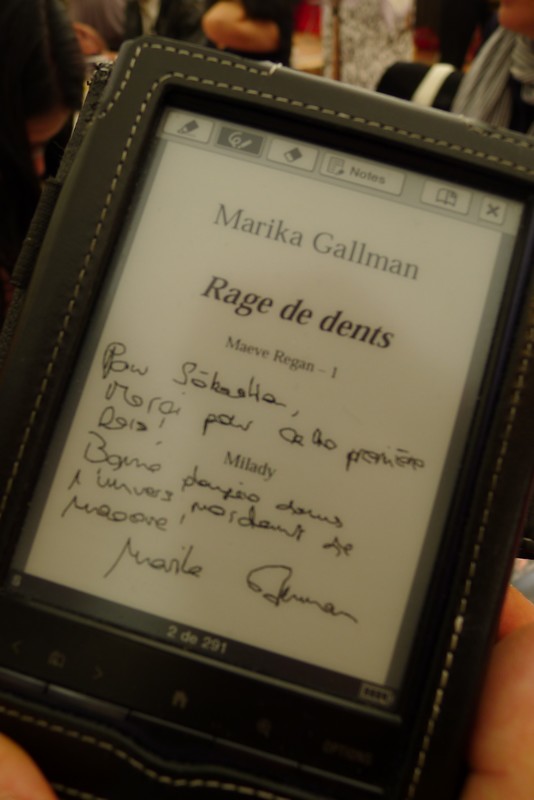 Notes
Marika Gallman
Rage de dents
Maeve Regan – 1
Pour Sébastien,
Merci pour cette première
fois!
Milady
Bonne plongée dans
l'univers mordant de
Maeve!
Marika Gallman
2 de 291
OPTIONS